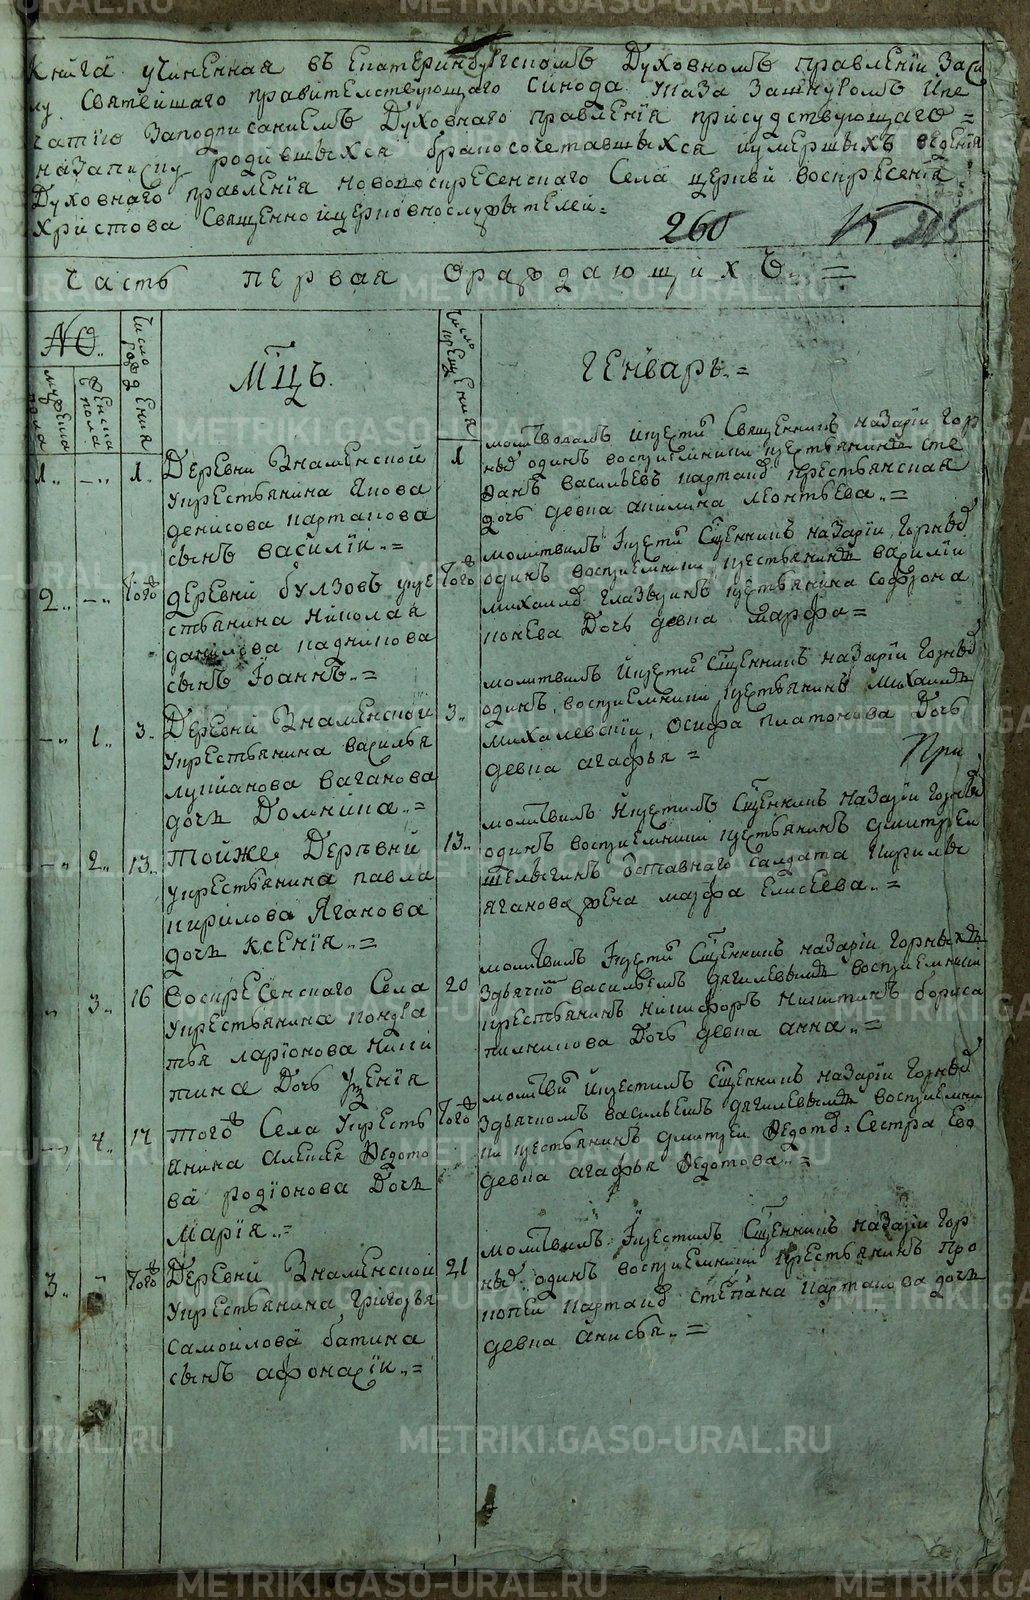 Книга учиненная въ Екатеринбургскомъ Духовномъ правленiи Заси
лу Святейшаго правителствующаго Синода Указа Зашнуромъ Ипе
чатiю Заподписаниемъ Духовнаго правленiя присудствующаго =
назаписку родившыхся бракосочетавшыхся иумершыхъ веденiя
Духовнаго правленiя Новоскресенскаго Села церкви воскресенiя
Христова Священно ицерковнослужытелей.=
260 215
Часть первая Ораждающихъ. =
№.
мужеска пола
Женска пола
Число рождения
Число крещения
Мцъ.
Генварь.=
1.. -.. 1.
Деревни Знаменской
укрестьянина Якова
денисова картапова
сынъ василiи..=
1
молитвовалъ икрести Священникъ назарiи Гор
ныд одинъ восприемники крестьянинъ Сте
фанъ васильевъ картапд крестьянская
дочь девка акилина леонтьева..=
2.. -.. Того
деревни булзовъ укре
стьянина Николая
данилова паднипова
сынъ Iоаннъ..=
Того
молитвилъ Iкрести Сщенникъ назарiи, Горныд
одинъ восприемники крестьянинъ василiи
михаилд глазыринъ крестьянина софрона
Дочь девка марфа=
-.. 1.. 3..
Деревни Знаменской
укрестьянина василья
лукиянова ваганова
дочь Домника..=
3..
молитвилъ Iкрести Сщенникъ назарiи Горныд
одинъ, восприемники крестьянинъ Михаилд
михалевскiи, Осифа платонова Дочь
девка агафья =
При
-.. 2.. 13..
Тойже Деревни
укрестьянина павла
кирилова Яганова
дочь Ксенiя..=
13..
молитвилъ Iкрестилъ Сщенникъ назарiи Горныд
одинъ восприемники крестьянинъ дмитреи
шелыгинъ Оставнаго Салдата Кирилы
Яганова жена марфа Елисеева..=
3.. 16
воскресенскаго Села
укрестьянина кондра
тья ларiонова Ники
тина Дочь
20
молитвилъ Iкрести Сщенникъ назарiи Горныхд
Здьячкомъ васильемъ дягилевымъ восприемники
крестьянинъ Никифоръ Никитинъ бориса
Дочь девка анна..=
4.. 17
того Села укресть
янина алексея Федото
ва родiонова Дочь
Марiя..=
Того
молитви Iкрестилъ Сщенникъ назарiи Горныд
Здьячкомъ васильемъ дягилевымъ восприемни
ки крестьянинъ дмитреи Федотд: Сестра Ево
девка агафья Федотова..=
3.. - Того
Деревни Знаменской
укрестьянина Григорья
Самойлова батина
сынъ афонасiи..=
21
молитвилъ Iкрестилъ Сщенникъ назарiи Гор
ныд одинъ восприемники крестьянинъ Про
копеи картапд Стефана картапова дочь
девка анисья..=
METRIKI.GASO-URAL.RU